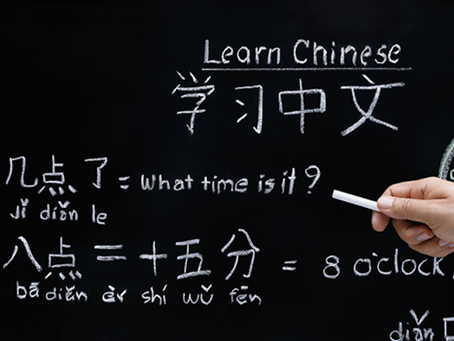 Learn Chinese
学习中文
几点了 = What time is it?
jǐ diǎn le
八点二十五分 = 8 o'clock
bā diǎn èr shí wǔ fēn
diǎn